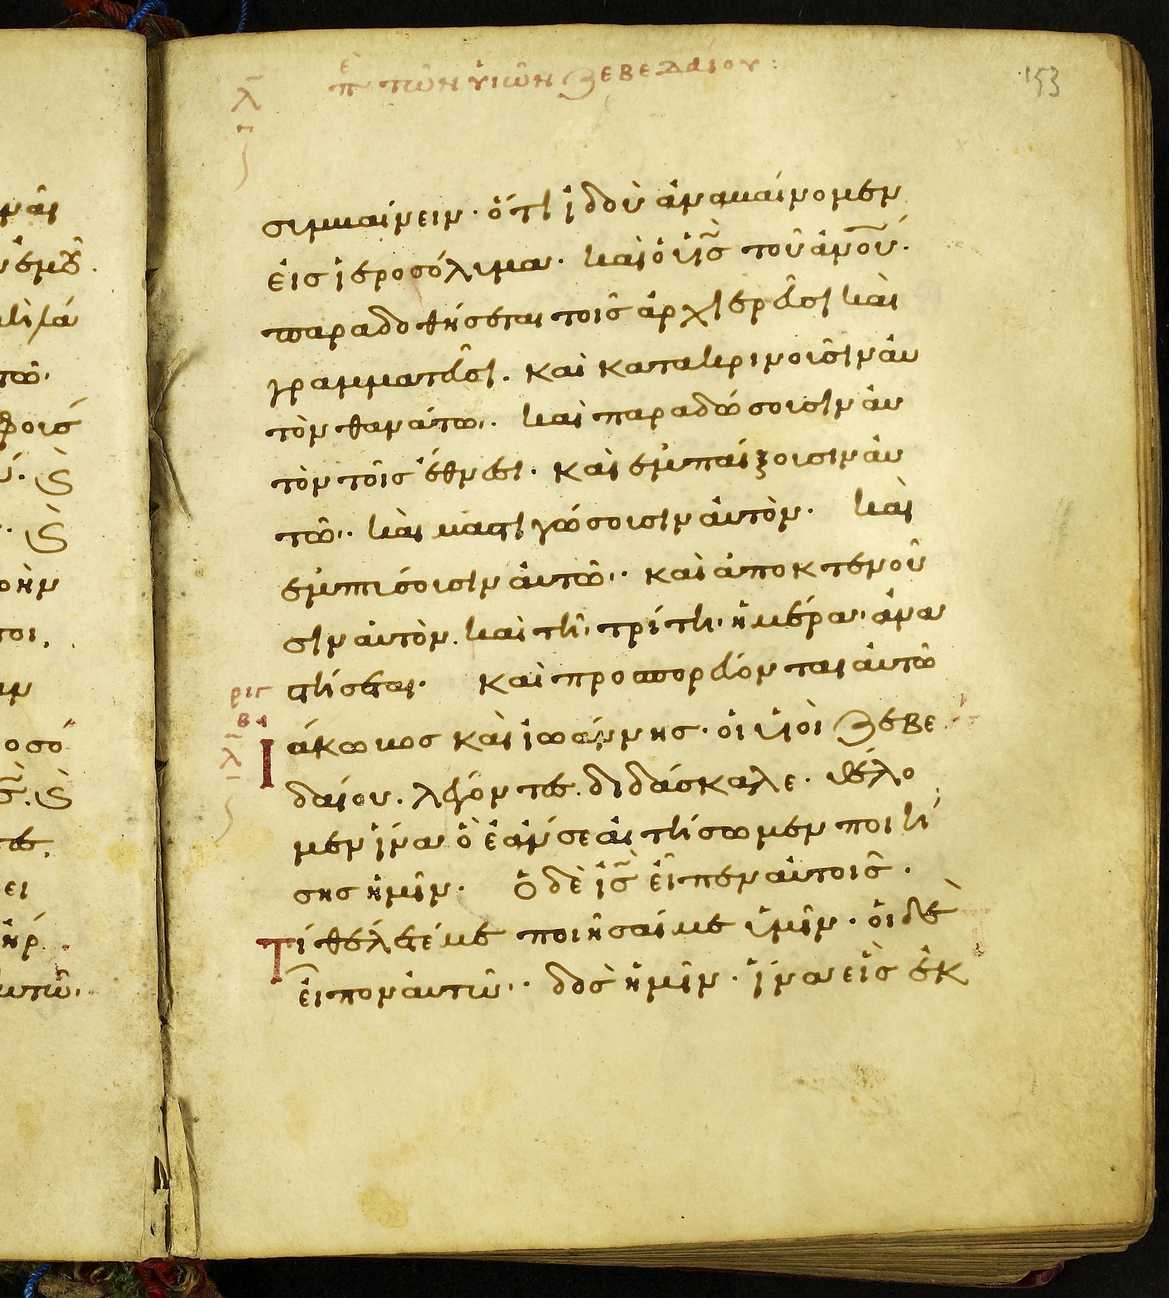 λ̄ π̄ε τῶν ὑιῶν Ζεβεδαίου:
153
συμβαίνειν· ὅτι ἰδοὺ ἀναβαίνομεν
εἰς ἱεροσόλυμα· καὶ ὁ ὑιὸς τοῦ ἀνου·
παραδοθήσεται τοῖς ἀρχιερεῦσι καὶ
γραμματεῦσι· καὶ κατακρινοῦσιν ἀυ
τὸν θανάτω· καὶ παραδώσουσιν ἀυ
τὸν τοῖς ἔθνεσι· καὶ ἐμπαίξουσιν ἀυ
τῶ· καὶ μαστιγώσουσιν ἀυτὸν· καὶ
ἐμπτύσουσιν ἀυτῶ· καὶ ἀποκτενοῦ
σιν ἀυτὸν· καὶ τῆ τρίτη ἡμέρα ἀνα
στήσεται· καὶ προσπορεύονται ἀυτῶ
Ἰάκωβος καὶ ἰωάννης· οἱ ὑιοὶ Ζεβε
δαίου· λέγοντες· διδάσκαλε· θέλο
μεν ἵνα ὃ ἐάν σε αἰτήσωμεν ποιή
σης ἡμῖν· Ὁ δὲ ις εἶπεν ἀυτοῖς·
Τί θέλετέ με ποιῆσαί με ὑμῖν· ὁι δὲ
εἶπον ἀυτῶ· δὸς ἡμῖν· ἵνα εἷς ἐκ